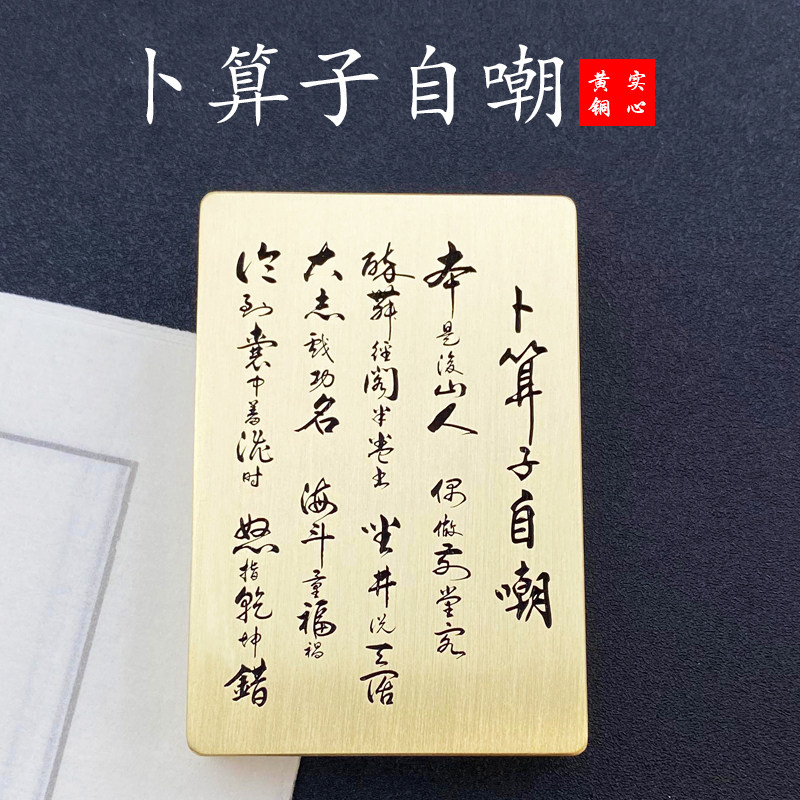 卜算子自嘲
实心
黄铜
卜算子自嘲
本是後山人 偶做前堂客
醉舞經閣半卷书 坐井说天阔
大志戏功名 海斗量福祸
论到囊中羞涩时 怒指乾坤錯